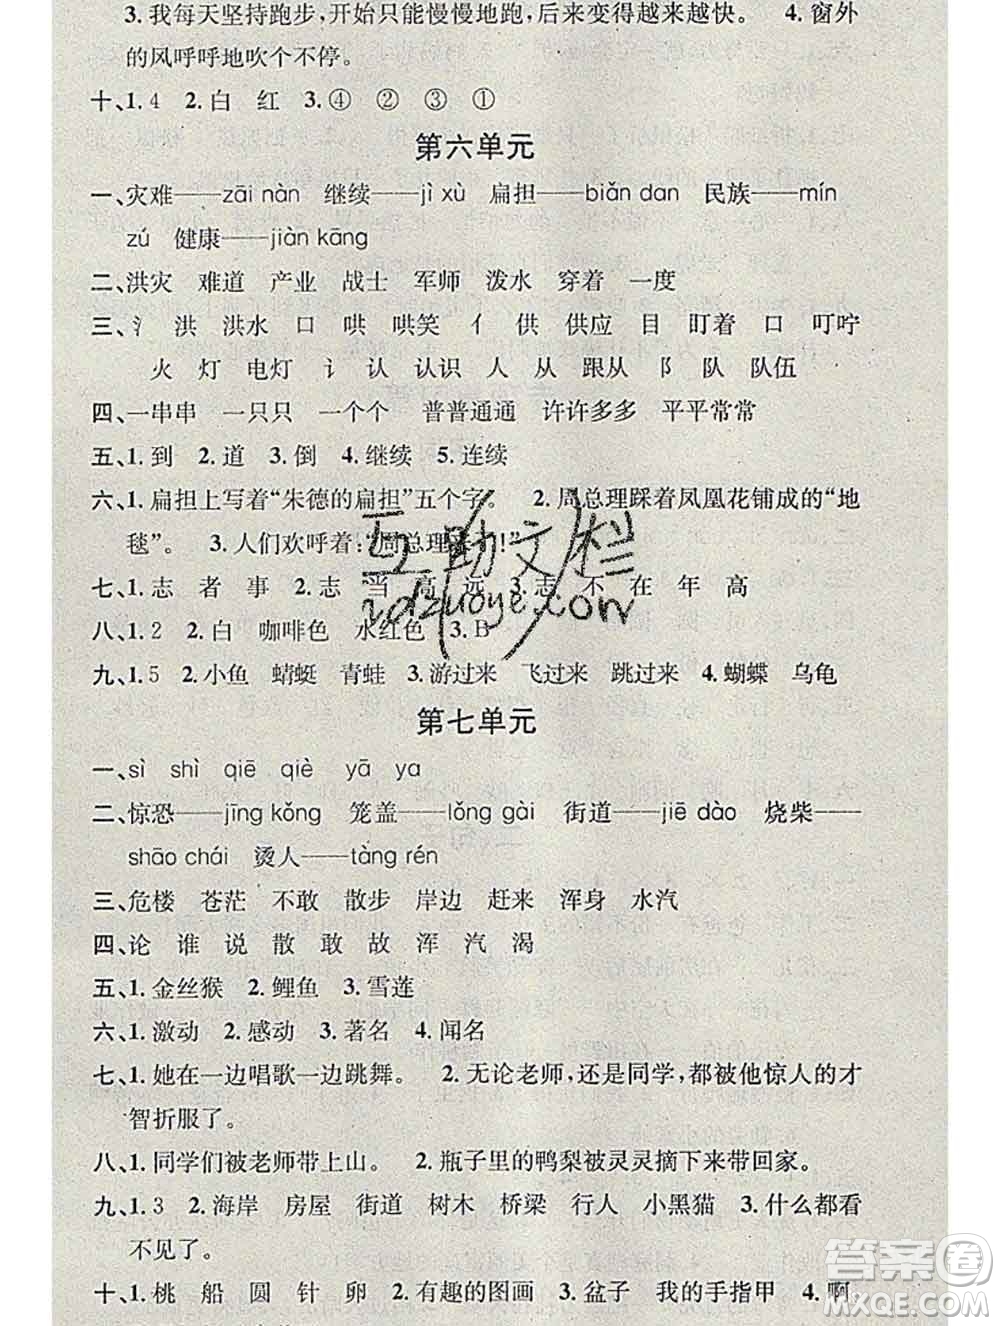 3. 我每天坚持跑步,开始只能慢慢地跑,后来变得越来越快。 4. 窗外
的风呼呼地吹个不停。
十、1. 4 2. 白 红 3. ④ ② ③ ①
第六单元
一、灾难——zāi nàn 继续——jì xù 扁担——biǎn dan 民族——mín
zú 健康——jiàn kāng
二、洪灾 难道 产业 战士 军师 泼水 穿着 一度
三、氵 洪 洪水 口 哄 哄笑 亻 供 供应 目 盯着 口 叮咛
火 灯 电灯 讠 认 认识 人 从 跟从 阝 队 队伍
四、一串串 一只只 一个个 普普通通 许许多多 平平常常
五、1. 到 2. 道 3. 倒 4. 继续 5. 连续
六、1. 扁担上写着“朱德的扁担”五个字。 2. 周总理踩着凤凰花铺成的“地
毯”。 3. 人们欢呼着:“周总理
七、1. 志 者 事 2. 志 当 高 远 3. 志 不 在 年 高
八、1. 2 2. 白 咖啡色 水红色 3. B
九、1. 5 2. 小鱼 蜻蜓 青蛙 3. 游过来 飞过来 跳过来 4. 蝴蝶 乌龟
第七单元
一、sì shì qiē qiè yā ya
二、惊恐——jīng kǒng 笼盖——lǒng gài 街道——jiē dào 烧柴——
shāo chái 烫人——tàng rén
三、危楼 苍茫 不敢 散步 岸边 赶来 浑身 水汽
四、论 谁 说 散 敢 故 浑 汽 渴
五、1. 金丝猴 2. 鲤鱼 3. 雪莲
六、1. 激动 2. 感动 3. 著名 4. 闻名
七、1. 她在一边唱歌一边跳舞。 2. 无论老师,还是同学,都被他惊人的才
智折服了。
八、1. 同学们被老师带上山。 2. 瓶子里的鸭梨被灵灵摘下来带回家。
九、1. 3 2. 海岸 房屋 街道 树木 桥梁 行人 小黑猫 3. 什么都看
不见了。
十、1. 桃 船 圆 针 卵 2. 有趣的图画 3. 盆子 我的手指甲 4. 啊
互助文栏
zdzuoye.com
答案圈
MXQE.COM